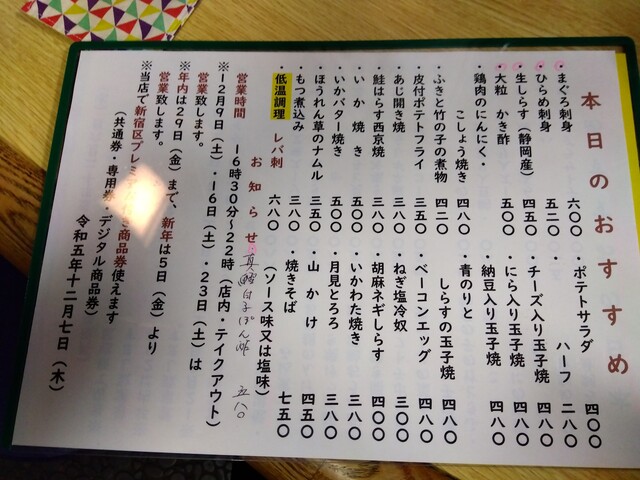 本日のおすすめ
・まぐろ刺身 六〇〇
・ひらめ刺身 五二〇
・生しらす（静岡産） 四五〇
・大粒 かき酢 五〇〇
・鶏肉のにんにく・
こしょう焼き 四八〇
・ふきと竹の子の煮物 四二〇
・皮付ポテトフライ 三五〇
・あじ開き焼 三八〇
・鮭はらす西京焼 三八〇
・いか焼き 五〇〇
・いかバター焼き 五〇〇
・ほうれん草のナムル 三五〇
・もつ煮込み 三八〇
・低温調理 レバ刺 六八〇
・ポテトサラダ 四〇〇
・ ハーフ 二八〇
・チーズ入り玉子焼 四八〇
・にら入り玉子焼 四八〇
・納豆入り玉子焼 四八〇
・青のりと
しらすの玉子焼 四八〇
・ベーコンエッグ 四八〇
・ねぎ塩冷奴 三〇〇
・胡麻ネギしらす 四〇〇
・いかわた焼き 三八〇
・月見とろろ 三八〇
・山かけ 四五〇
・焼きそば 七五〇
（ソース味又は塩味）
子ぽん酢 五八〇
お知らせ
営業時間 16時30分〜22時（店内・テイクアウト）
※12月9日（土）・16日（土）・23日（土）は
営業致します。
※年内は29日（金）まで、新年は5日（金）より
営業致します。
※当店で新宿区プレミアム商品券使えます
（共通券・専用券・デジタル商品券）
令和五年十二月七日（木）